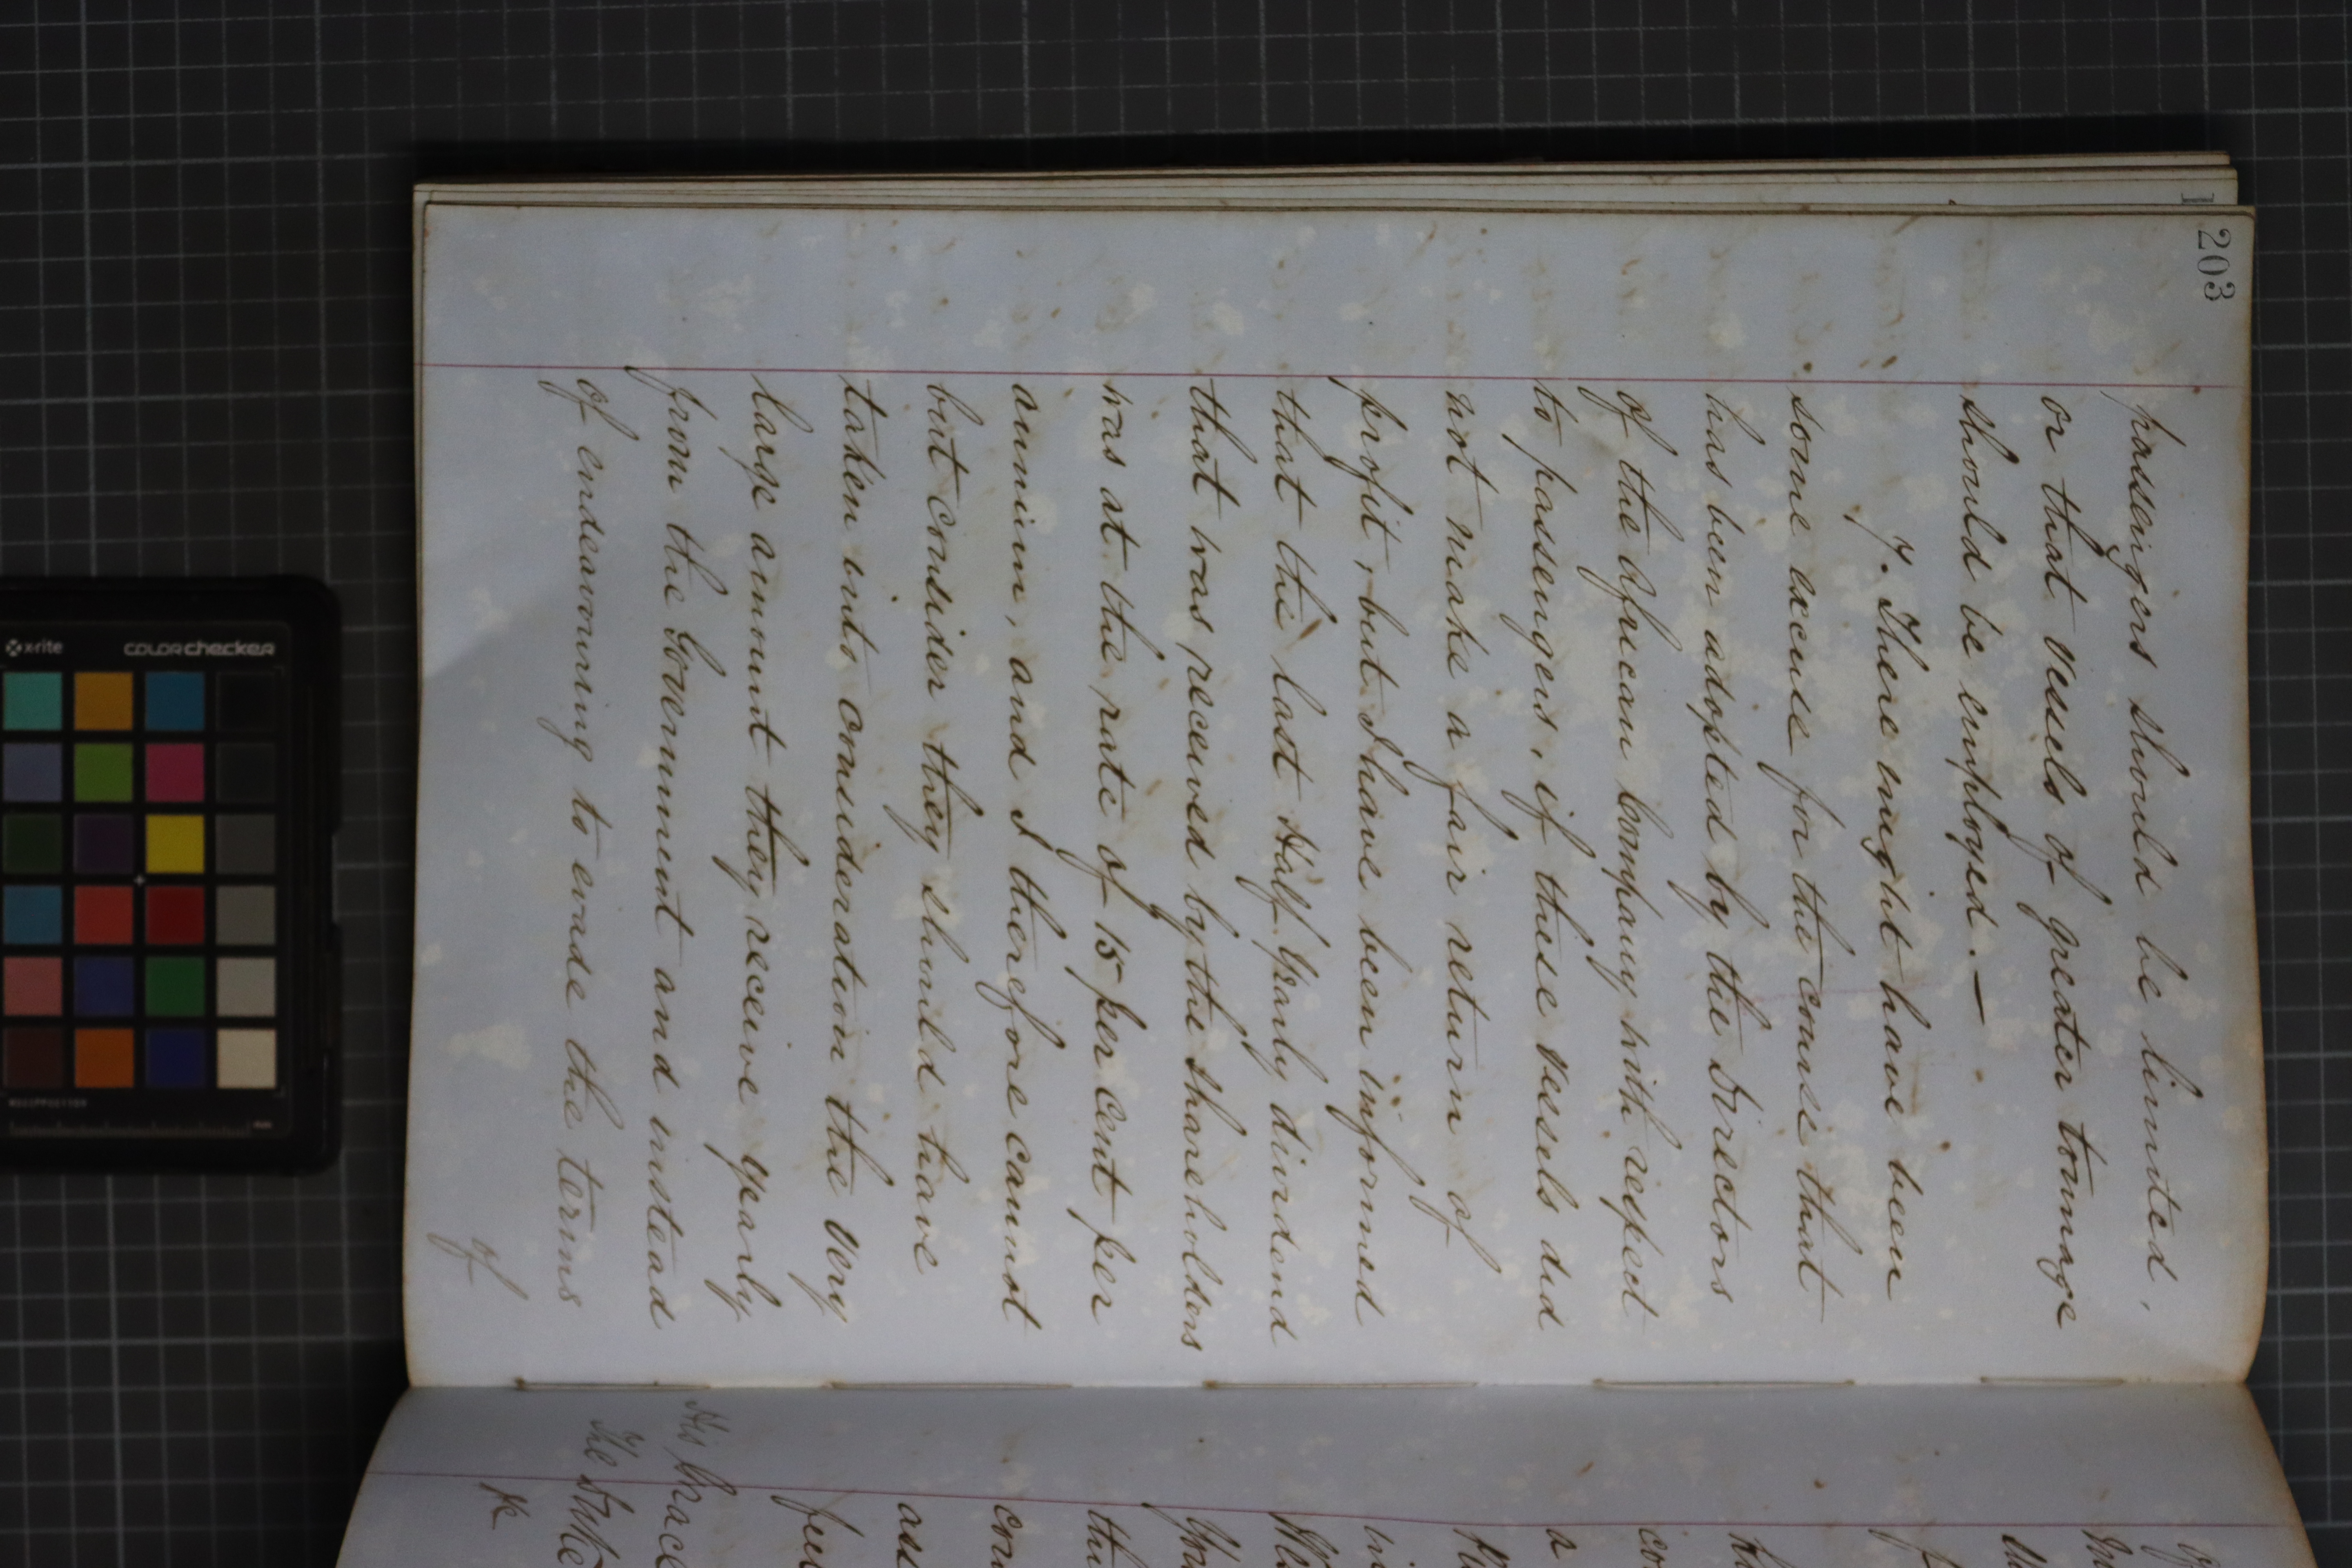 203
passengers should be limited,
or that vessels of greater tonnage
should be employed. —
7. There might have been
some excuse for the course that
has been adopted by the Directors
of the African Company with respect
to passengers, if these vessels did
not make a fair return of
profit, but I have been informed
that the last Half Yearly dividend
that was received by the Shareholders
was at the rate of 15 per cent per
annum, and I therefore cannot
but consider they should have
taken into consideration the very
large amount they receive yearly
from the Government and instead
of endeavouring to evade the terms
of
His Grace
The Duke
x-rite
colorchecker